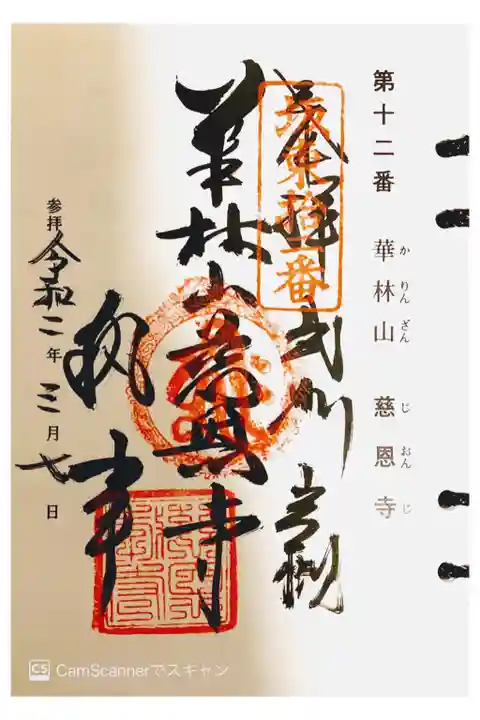 第十二番 華林山 慈恩寺
か りん ざん じ おん じ
奉拝 武州 岩槻
坂東拾二番
華林山慈恩寺
執事
参拝 令和二年三月七日
CS CamScannerでスキャン